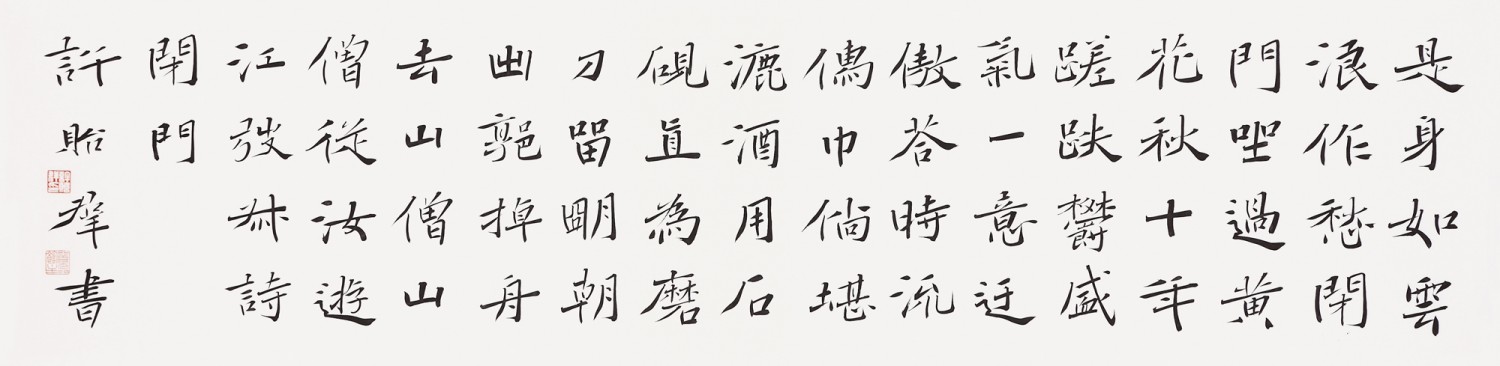 是身如雲
浪作愁閉
門坐過黃
花秋十年
蹉跌鬱盛
氣一意迂
傲荅時流
巾倘堪
漉酒用石
硯直為磨
刀留朙朝
出郭掉舟
去山僧山
僧從汝遊
江弢叔詩
閉門
許眙書